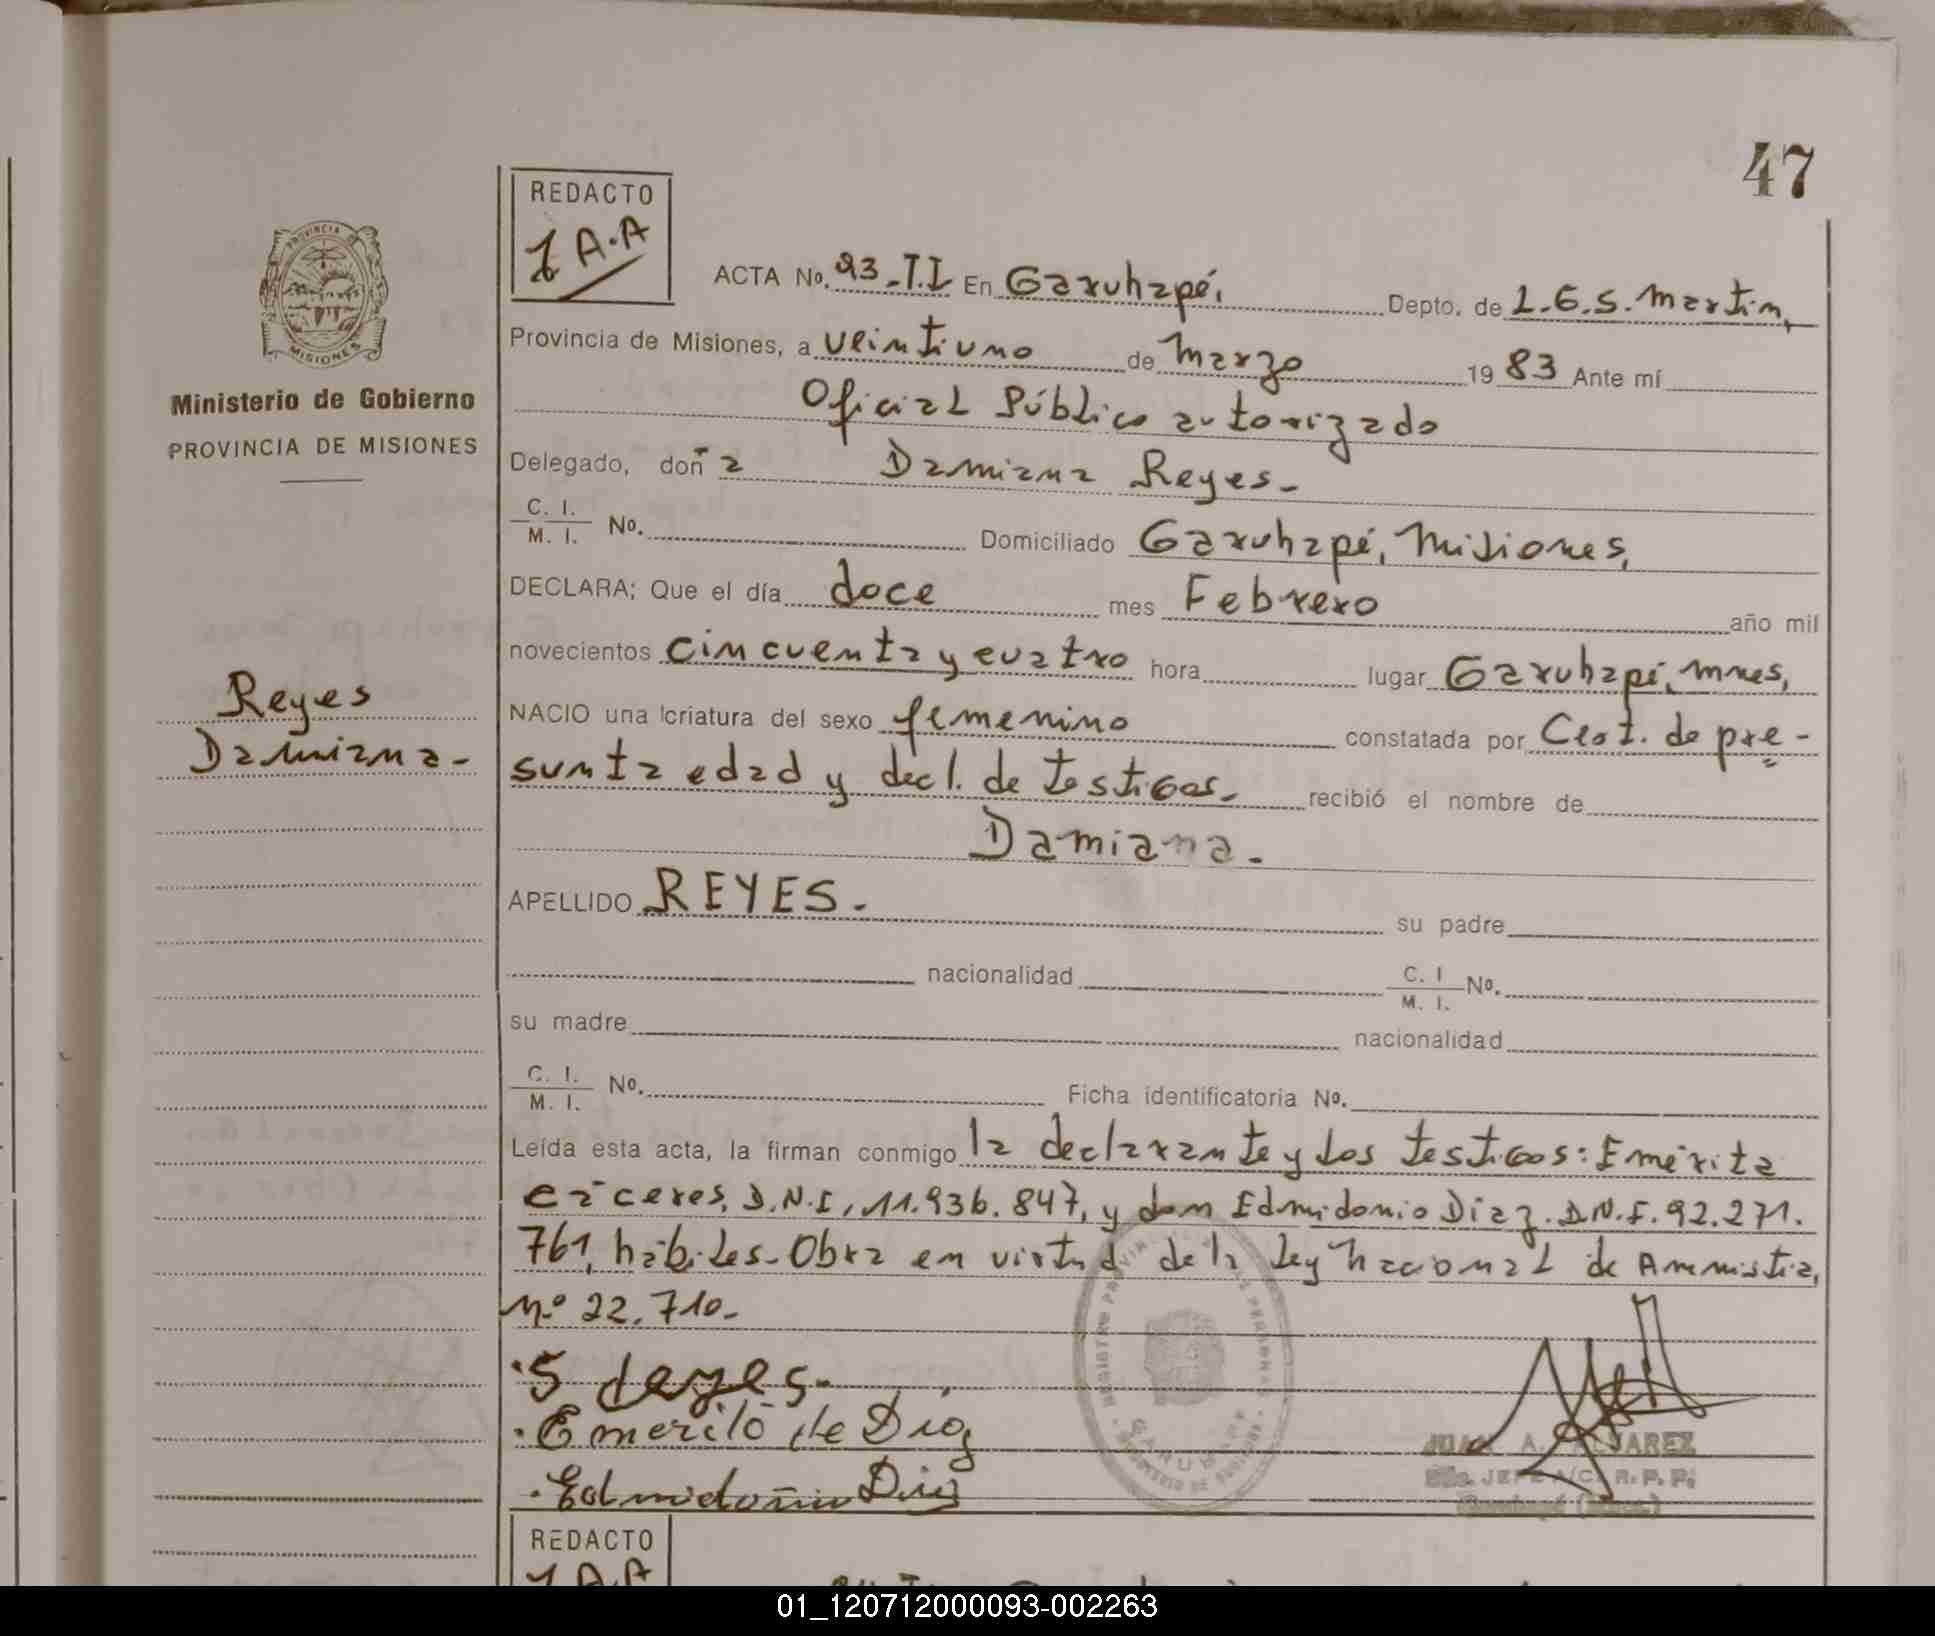 47
REDACTO
J A.A
PROVINCIA DE
MISIONES
Ministerio de Gobierno
PROVINCIA DE MISIONES
Reyes
Damiana-
ACTA No. 93-T.I En Garuhapé, Depto. de L.G.S. Martin,
Provincia de Misiones, a veintiuno de Marzo 19 83 Ante mí
Oficial Público autorizado
Delegado, doñ a Damiana Reyes-
C. I.
M. I. No. Domiciliado Garuhapé, Misiones,
DECLARA; Que el día doce mes Febrero año mil
novecientos cincuenta y cuatro hora lugar Garuhapé, mnes,
NACIO una criatura del sexo femenino constatada por Cert. de pre-
sunta edad y decl. de testigos- recibió el nombre de
Damiana-
APELLIDO REYES- su padre
nacionalidad C. I
M. I. No.
su madre nacionalidad
C. I.
M. I. No. Ficha identificatoria No.
Leída esta acta, la firman conmigo la declarante y los testigos: Emérita
cáceres, D.N.I, 11.936.847, y don Edmidonio Diaz. D.N.I. 92.271.
761, hábiles-Obra en virtud de la Ley Nacional de Ammistia,
Nº 22.710-
Reyes-
de Diaz
Edmidonio Diaz
JUAN A. ALVAREZ
JEFE A/C. R. P. P.
REDACTO
J A.A
01_120712000093-002263